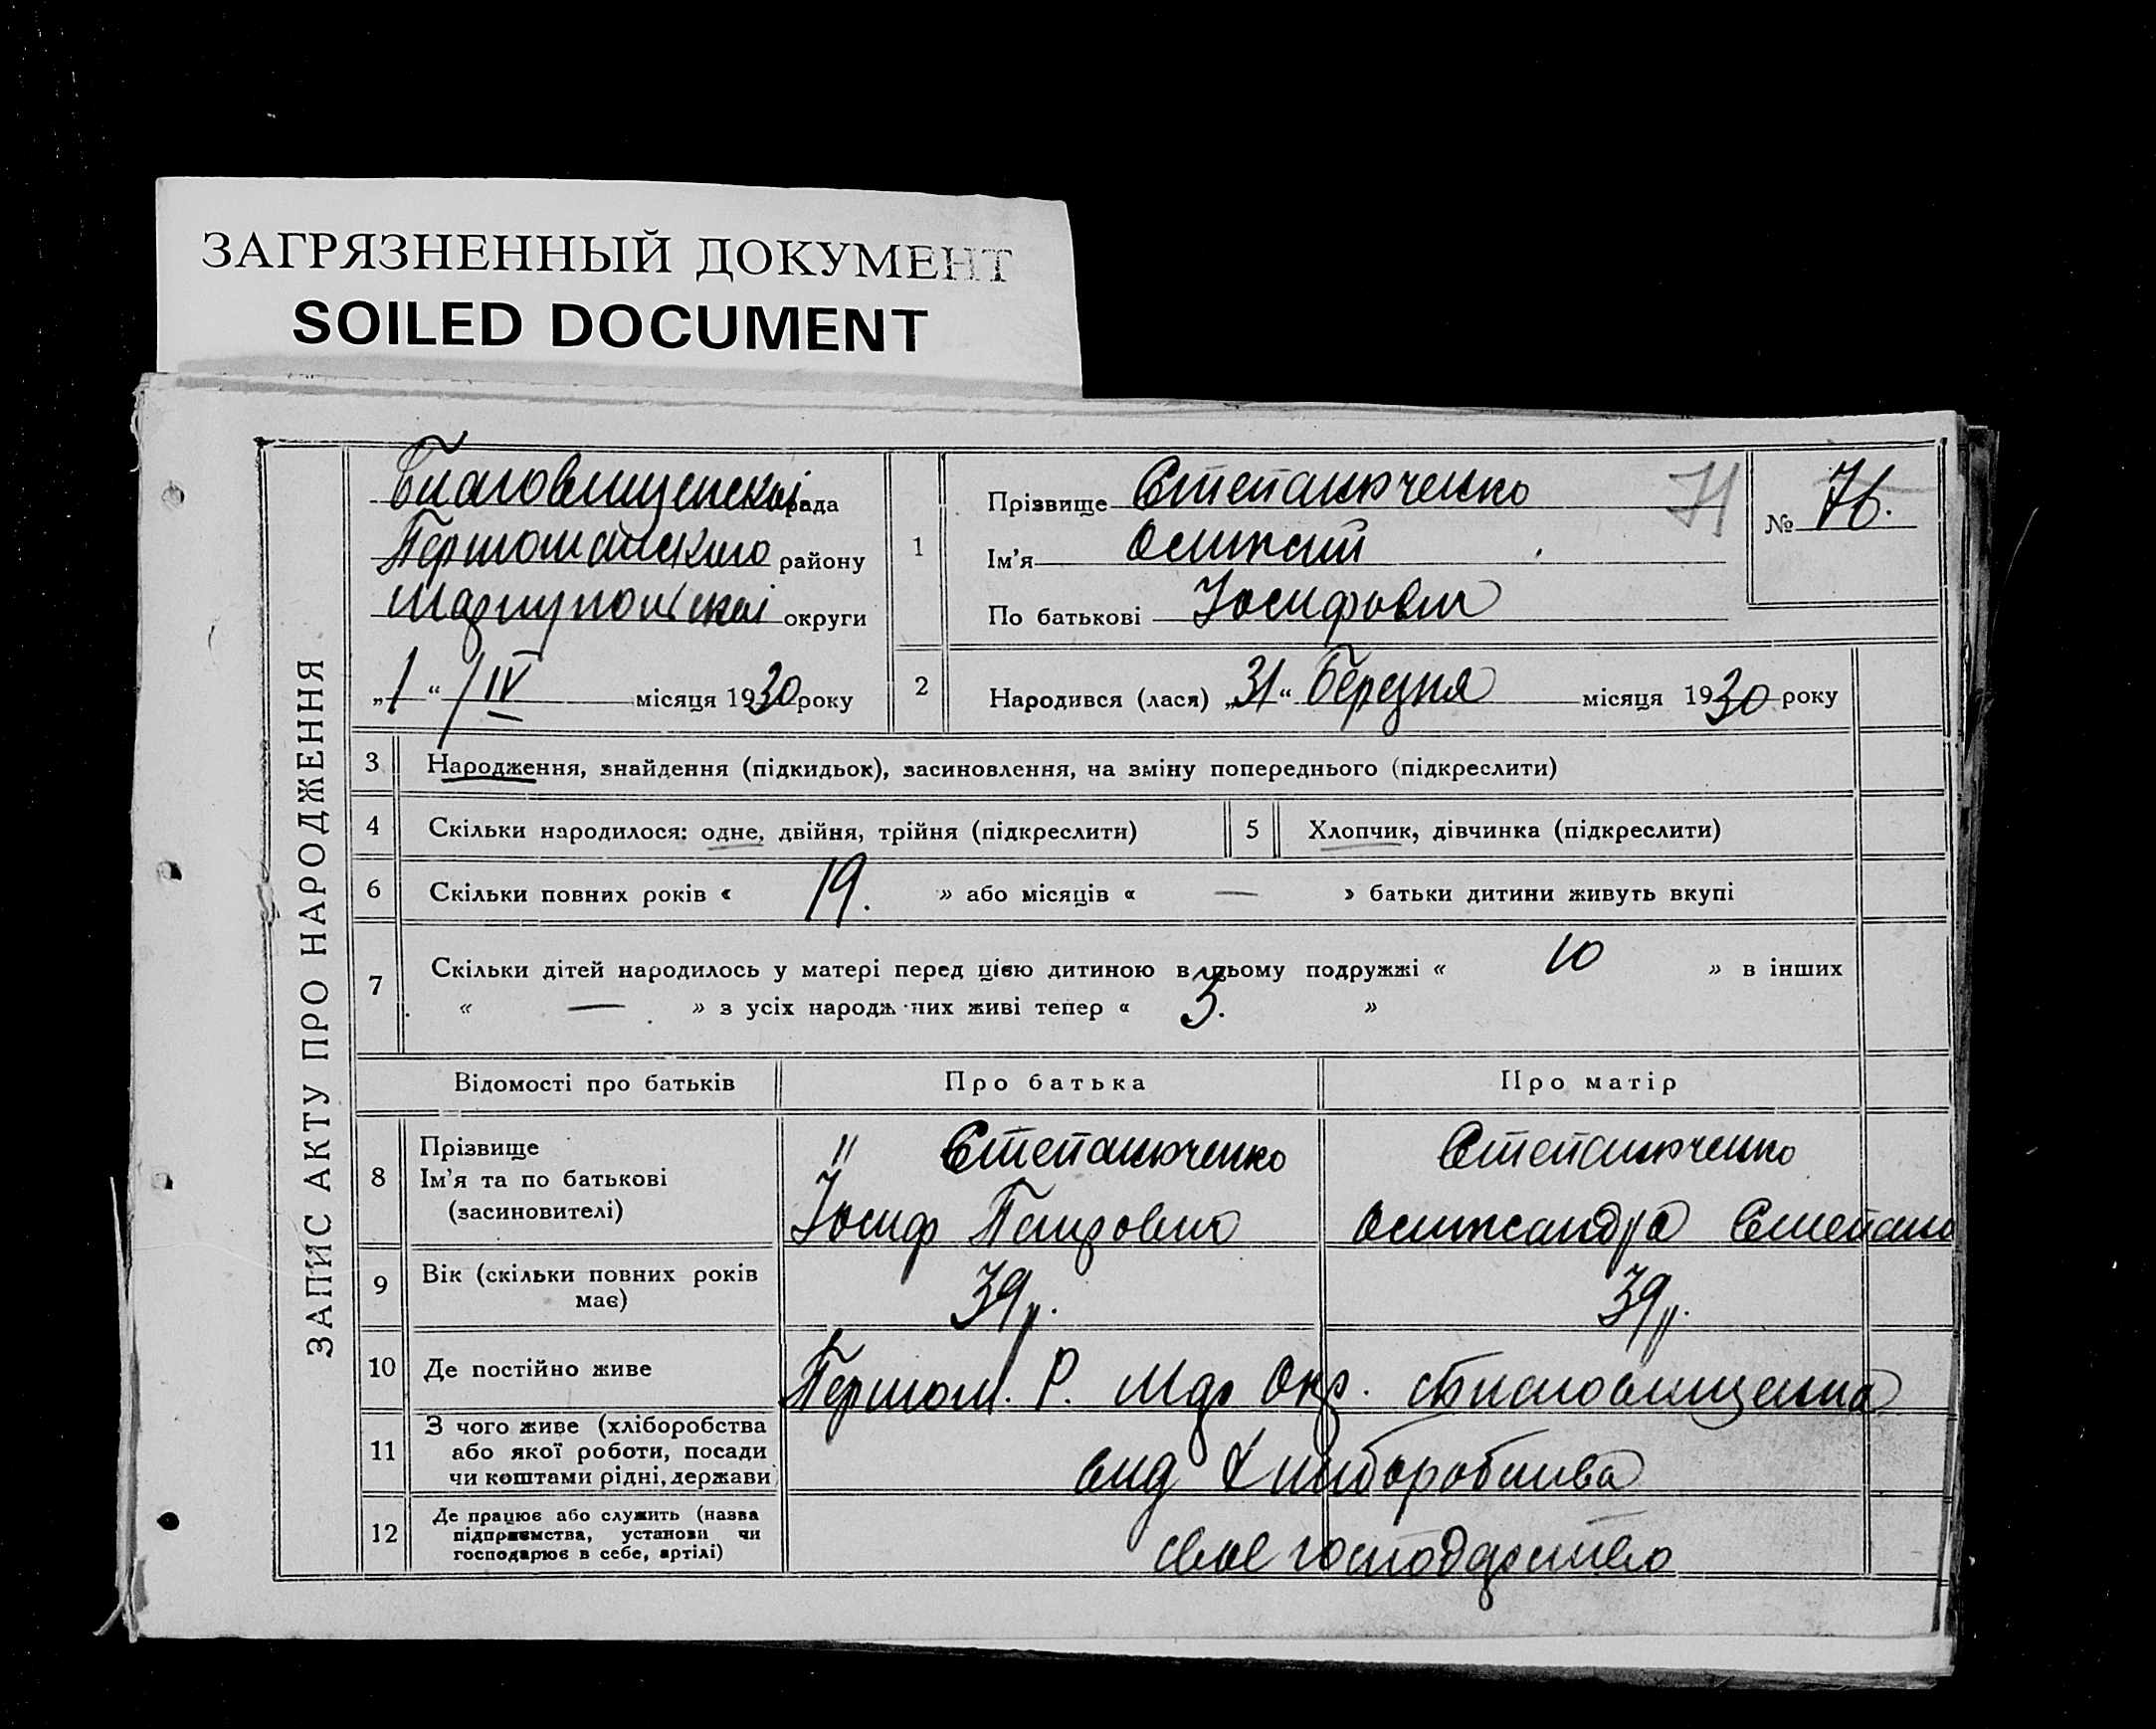 ЗАГРЯЗНЕННЫЙ ДОКУМЕНТ
SOILED DOCUMENT
ЗАПИС АКТУ ПРО НАРОДЖЕННЯ
Благовищенскої рада
Першомайського району
Маріупольскої округи
„1“ /IV місяця 1930 року
1
Прізвище Степанюченко
71
Ім'я Олексій
По батькові Йосифович
№ 76.
2
Народився (лася) „31“ березня місяця 1930 року
3 Народження, знайдення (підкидьок), засиновлення, на зміну попереднього (підкреслити)
4 Скільки народилося: одне, двійня, трійня (підкреслити)
5 Хлопчик, дівчинка (підкреслити)
6 Скільки повних років « 19. » або місяців « — » батьки дитини живуть вкупі
7 Скільки дітей народилось у матері перед цією дитиною в цьому подружжі « 10 » в інших
« — » з усіх народж них живі тепер « 3. »
Відомості про батьків Про батька Про матір
8 Прізвище
Ім'я та по батькові
(засиновителі)
" Степанюченко
Йосиф
Степанюченко
Олександра Степано
9 Вік (скільки повних років
має)
39 р.
39 р.
10 Де постійно живе
Першом. Р. Мар Окр. с Благовищенка
11 З чого живе (хліборобства
або якої роботи, посади
чи коштами рідні, держави
вид Хлиборобства
12 Де працює або служить (назва
підприємства, установи чи
господарює в себе, артілі)
свое господарство